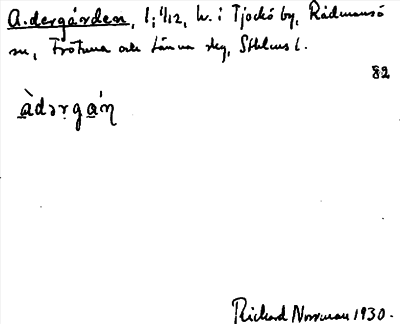 A.dergården, 1; 1/12, h. i Tjockö by, Rådmansö
sn, Frötuna och Länna skg, Sthlms l.
82
àdərgáṇ
Richard Norrman 1930.